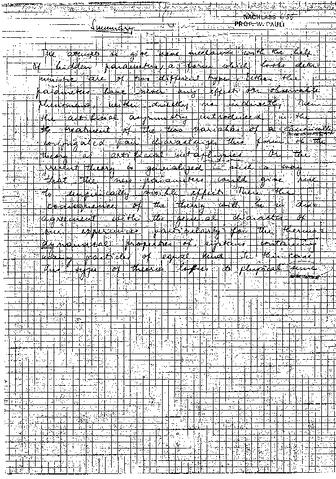 NACHLASS
PROF. W. PAULI
Summary
The attempts to give wave mechanics with the help
of hidden parameters a form which looks deter-
ministic are of two different types. Either the
parameters have never any effect on observable
phenomena, neither directly nor indirectly. Then
the artificial asymmetry introduced in the
treatment of the two variables of a canonically
conjugated pair characterizes this form of the
theory as artificial metaphysics. Or the
theory is generalized in such a way
that the new parameters could give rise
to empirically visible effects. Then the
consequences of the theory will be in dis-
agreement with the general character of
our experiences, particularly for the thermo-
dynamical properties of systems containing
many particles of equal kind. In this case
this type of theories loses its physical sense